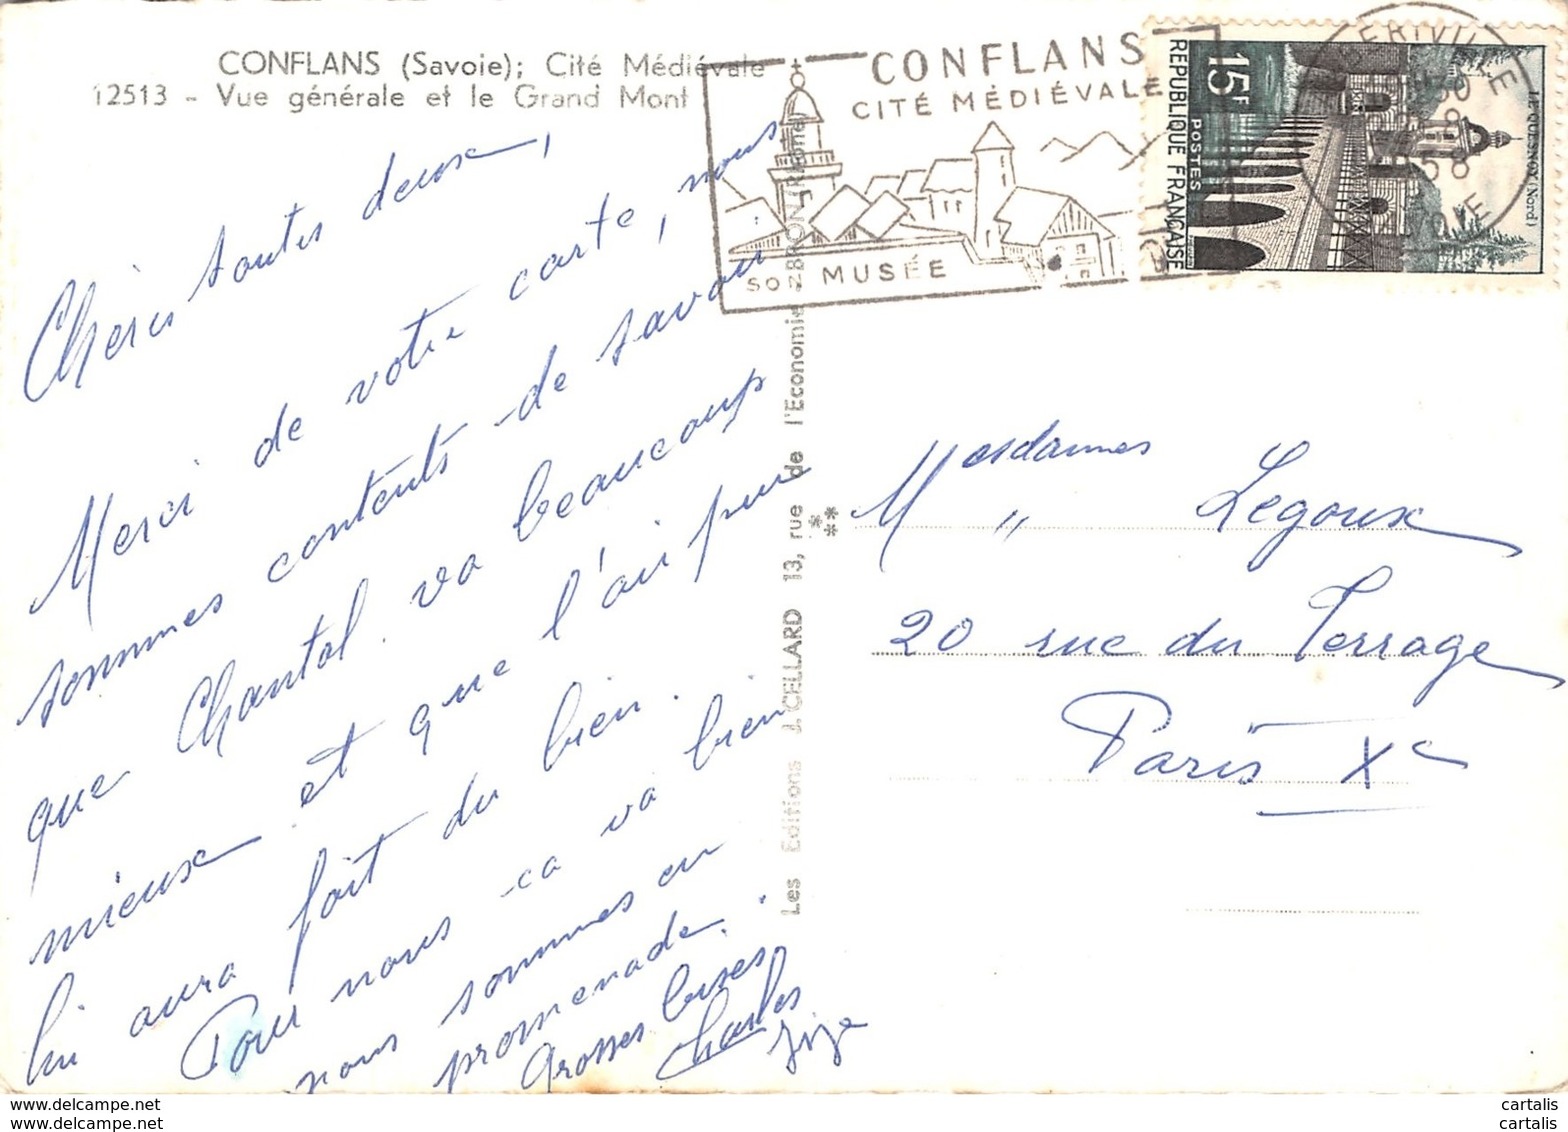 CONFLANS (Savoie); Cité Médiévale
12513 - Vue générale et le Grand Mont
CONFLANS
CITÉ MÉDIÉVALE
MUSÉE
15F
POSTES
REPUBLIQUE FRANÇAISE
LE QUESNOY (Nord)
Chères toutes deux,
Merci de votre carte, nous
sommes contents de savoir
que Chantal va beaucoup
mieux et que l'air pur
lui aura fait du bien.
Pour nous ca va bien
nous sommes en
promenade.
Grosses bises
Charles
Zize
Les Editions J. CELLARD 13, rue de l'Economie BRON (Rhône)
Mesdames
" Legoux
20 rue du Terrage
Paris Xe
www.cartalis.com
www.cartalis.com
cartalis
cartalis